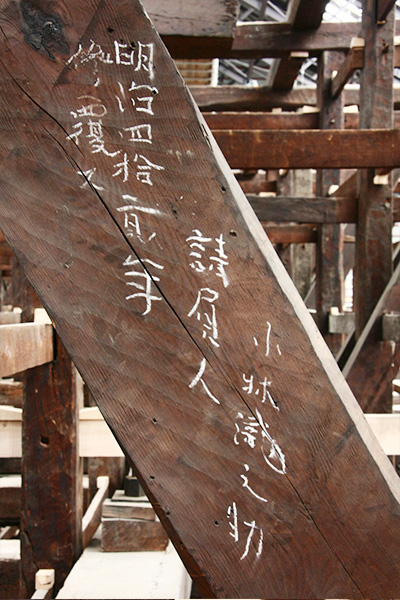 明治四拾貳年
修覆ス
請屓人
小林瀧之助